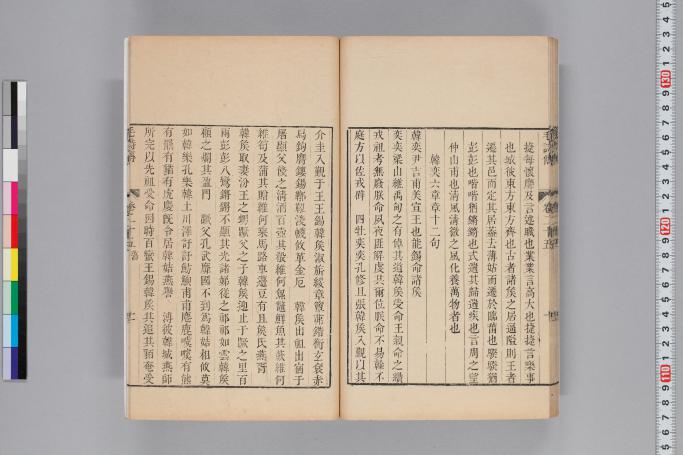 捷每懷靡及言述職也業業言高大也捷捷言樂事
也城彼東方東方齊也古者諸矦之居逼隘則王者
遷其邑而定其居蓋去薄姑而遷於臨菑也騤騤猶
彭彭也喈喈猶鏘鏘也式遄其歸遄疾也言周之望
仲山甫也清風清微之風化養萬物者也
韓奕六章章十二句
韓奕尹吉甫美宣王也能錫命諸矦
奕奕梁山維禹甸之有倬其道韓矦受命王親命之纘
戎祖考無廢朕命夙夜匪解虔共爾位朕命不易榦不
庭方以佐戎辟 四牡奕奕孔脩且張韓矦入覲以其
介圭入覲于王王錫韓矦淑旂綏章簟茀錯衡玄袞赤
舄鉤膺鏤鍚鞹鞃淺幭鞗革金厄 韓矦出祖出宿于
屠顯父餞之清酒百壺其殽維何炰鼈鮮魚其蔌維何
維筍及蒲其贈維何乘馬路車籩豆有且矦氏燕胥
韓矦取妻汾王之甥蹶父之子韓矦迎止于蹶之里百
兩彭彭八鸞鏘鏘不顯其光諸娣從之祁祁如雲韓矦
顧之爛其盈門 蹶父孔武靡國不到爲韓姞相攸莫
如韓樂孔樂韓土川澤訏訏魴鱮甫甫麀鹿噳噳有熊
有羆有貓有虎慶旣令居韓姞燕譽 溥彼韓城燕師
所完以先祖受命因時百蠻王錫韓矦其追其貊奄受